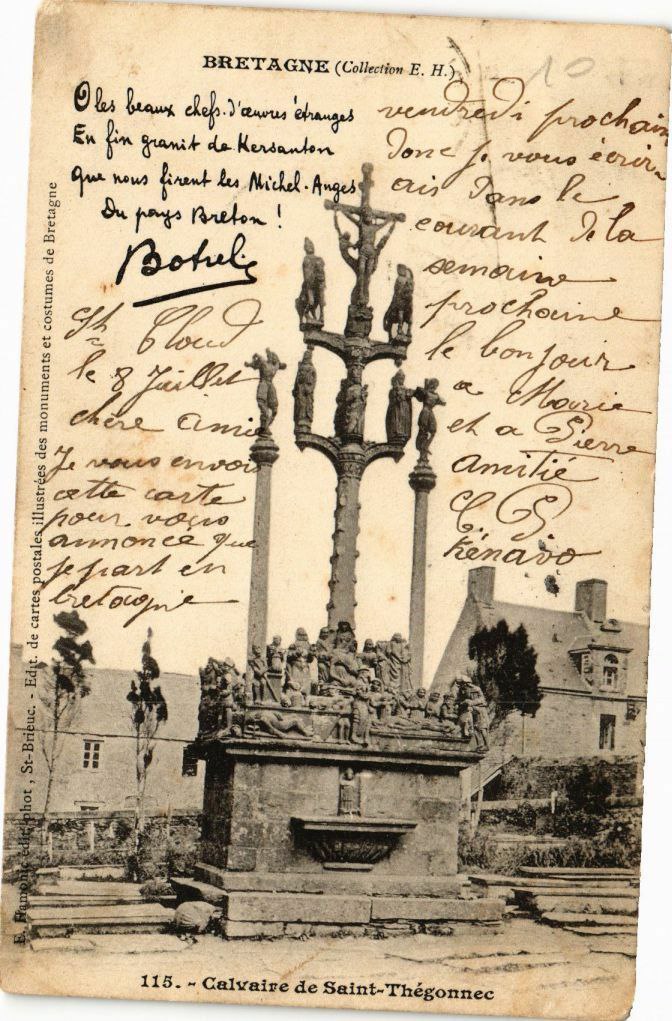 BRETAGNE (Collection E. H.)
O les beaux chefs-d'œuvres étranges
En fin granit de Kersanton
Que nous firent les Michel-Anges
Du pays Breton !
Botrel
St Cloud
le 8 Juillet
chère amie
Je vous envois
cette carte
pour vous
annoncé que
je part en
bretagne
vendredi prochain
donc je vous écrir-
ais dans le
courant de la
semaine
prochaine
le bonjour
a Marie
et a Pierre
amitié
C. P.
Kénavo
E. Hamonic edit. phot , St-Brieuc. - Edit. de cartes postales illustrées des monuments et costumes de Bretagne
115. - Calvaire de Saint-Thégonnec
10